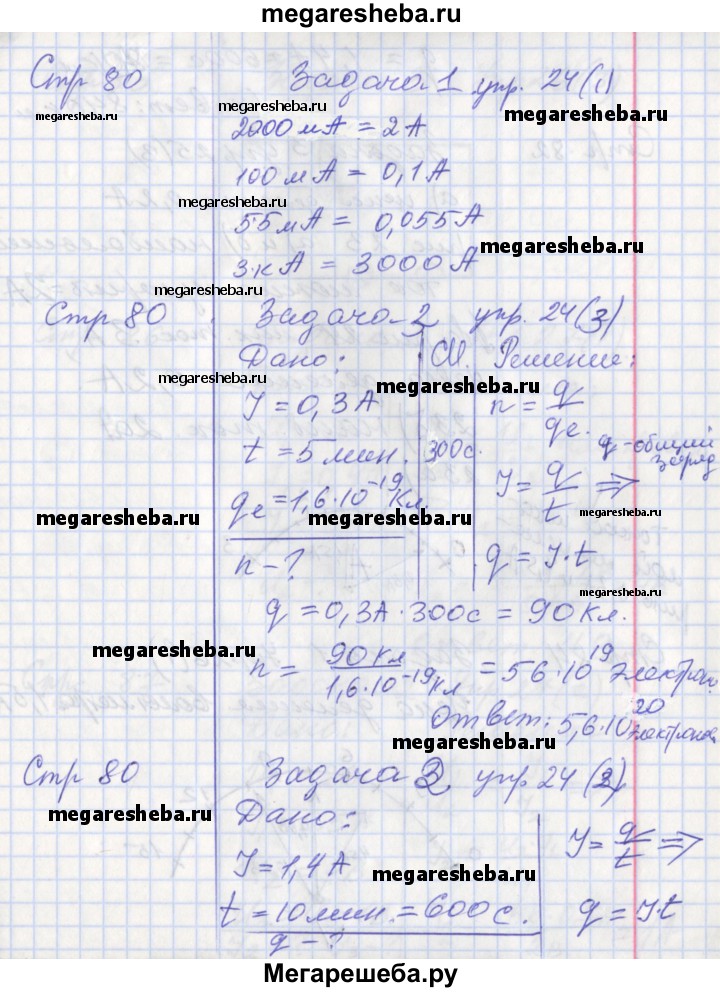 megaresheba.ru
Стр 80 Задача 1 упр. 24(1)
megaresheba.ru megaresheba.ru megaresheba.ru
2000 мА = 2 А
100 мА = 0,1 А
megaresheba.ru
55 мА = 0,055 А
megaresheba.ru
3 кА = 3000 А
megaresheba.ru
Стр 80 Задача 2 упр. 24(3)
megaresheba.ru
Дано: СИ. Решение:
megaresheba.ru megaresheba.ru
I = 0,3 А n = q/qe.
t = 5 мин. 300с. q - общий заряд
qe = 1,6·10⁻¹⁹ Кл I = q/t ⇒
megaresheba.ru megaresheba.ru megaresheba.ru
n - ? q = I·t
megaresheba.ru
q = 0,3А · 300с = 90 Кл.
megaresheba.ru
n = 90 Кл / 1,6·10⁻¹⁹ Кл = 56·10¹⁹ электрон.
Ответ: 5,6·10²⁰ электронов
megaresheba.ru
Стр 80 Задача 3 упр 24 (2)
megaresheba.ru megaresheba.ru
Дано: I = q/t ⇒
I = 1,4 А
megaresheba.ru
t = 10 мин. = 600 с. q = I·t
q - ?
Мегарешеба.ру